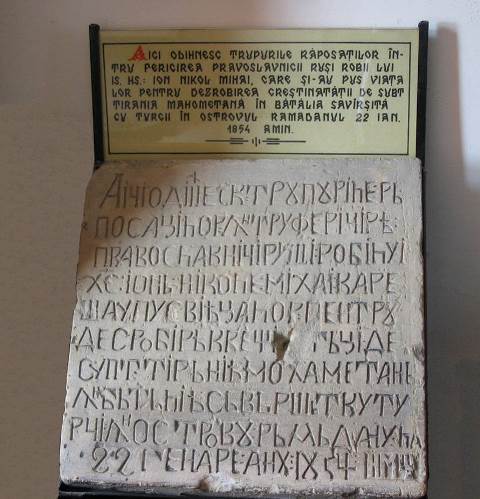 AICI ODIHNESC TRUPURILE RĂPOSAȚILOR ÎN-
TRU FERICIREA PRAVOSLAVNICII RUȘI ROBII LUI
IS. HS.: ION NIKOL MIHAI, CARE ȘI-AU PUS VIAȚA
LOR PENTRU DEZROBIREA CREȘTINĂTĂȚII DE SUBT
TIRANIA MAHOMETANĂ ÎN BĂTĂLIA SĂVÎRȘITĂ
CU TURCII ÎN OSTROVUL RAMADANUL 22 IAN.
1854 AMIN.
АІЧІ ТРꙊПꙊРІЛЕ РЪ
ПОСАЦІЛОР ꙟТРУ ФЕРІЧІРѢ
ПРАВОСЛАВНІЧІ РУШІ РОБІ ЛУІ
ХС: ІОНЬ НІКОЛЕ МІХАІ КАРЕ
ШАУ ПУС ВІѢЦА ЛОР ПЕНТРУ
ДЕСРОБІРѢ ДЕ
СУПТ ТІРЪНІѢ МОХАМЕТАНЬ
ꙟ КУ ТУ
РЧІ ꙟ ОСТРОВꙊ
22 ГЕНАРЕ